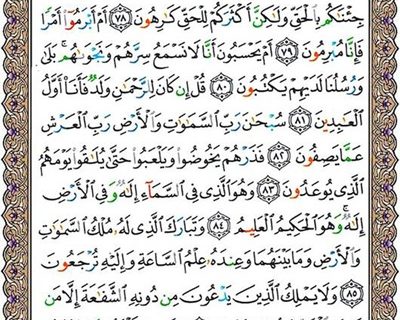 جِئْنَٰكُم بِٱلْحَقِّ وَلَٰكِنَّ أَكْثَرَكُمْ لِلْحَقِّ كَٰرِهُونَ ٧٨ أَمْ أَبْرَمُوٓا۟ أَمْرًا
فَإِنَّا مُبْرِمُونَ ٧٩ أَمْ يَحْسَبُونَ أَنَّا لَا نَسْمَعُ سِرَّهُمْ وَنَجْوَىٰهُم ۚ بَلَىٰ
وَرُسُلُنَا لَدَيْهِمْ يَكْتُبُونَ ٨٠ قُلْ إِن كَانَ لِلرَّحْمَٰنِ وَلَدٌ فَأَنَا۠ أَوَّلُ
ٱلْعَٰبِدِينَ ٨١ سُبْحَٰنَ رَبِّ ٱلسَّمَٰوَٰتِ وَٱلْأَرْضِ رَبِّ ٱلْعَرْشِ
عَمَّا يَصِفُونَ ٨٢ فَذَرْهُمْ يَخُوضُوا۟ وَيَلْعَبُوا۟ حَتَّىٰ يُلَٰقُوا۟ يَوْمَهُمُ
ٱلَّذِى يُوعَدُونَ ٨٣ وَهُوَ ٱلَّذِى فِى ٱلسَّمَآءِ إِلَٰهٌ وَفِى ٱلْأَرْضِ
إِلَٰهٌ ۚ وَهُوَ ٱلْحَكِيمُ ٱلْعَلِيمُ ٨٤ وَتَبَارَكَ ٱلَّذِى لَهُۥ مُلْكُ ٱلسَّمَٰوَٰتِ
وَٱلْأَرْضِ وَمَا بَيْنَهُمَا وَعِندَهُۥ عِلْمُ ٱلسَّاعَةِ وَإِلَيْهِ تُرْجَعُونَ
٨٥ وَلَا يَمْلِكُ ٱلَّذِينَ يَدْعُونَ مِن دُونِهِ ٱلشَّفَٰعَةَ إِلَّا مَن